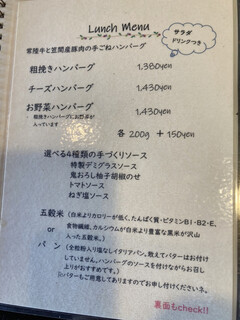 Lunch Menu
サラダ
ドリンクつき
常陸牛と笠間産豚肉の手ごねハンバーグ
粗挽きハンバーグ 1,380yen
チーズハンバーグ 1,430yen
お野菜ハンバーグ 1,430yen
粗挽きハンバーグにお野菜が
入っています
各 200g +150yen
選べる4種類の手づくりソース
特製デミグラスソース
鬼おろし柚子胡椒のせ
トマトソース
ねぎ塩ソース
五穀米 (白米よりカロリーが低く、たんぱく質・ビタミンB1・B2・E、
食物繊維、カルシウムが白米より豊富な黒米が沢山
入った五穀米。)
or
パン (全粒粉入り塩なしイタリアパン。敢えてバターはお付け
していません。ハンバーグのソースを付けながらお召し
上りがおすすめです。)
※バターもご用意しておりますのでお申し付けください。
裏面もcheck!!